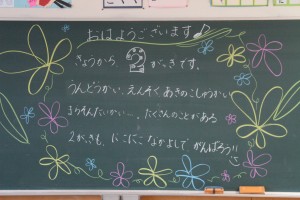 おはようございます♪
きょうから 2 がっきです。
うんどうかい、えんそく、あきのしゅうかい
たくさんのことがある
2がっきも、にこにこなかよしで がんばろう!!